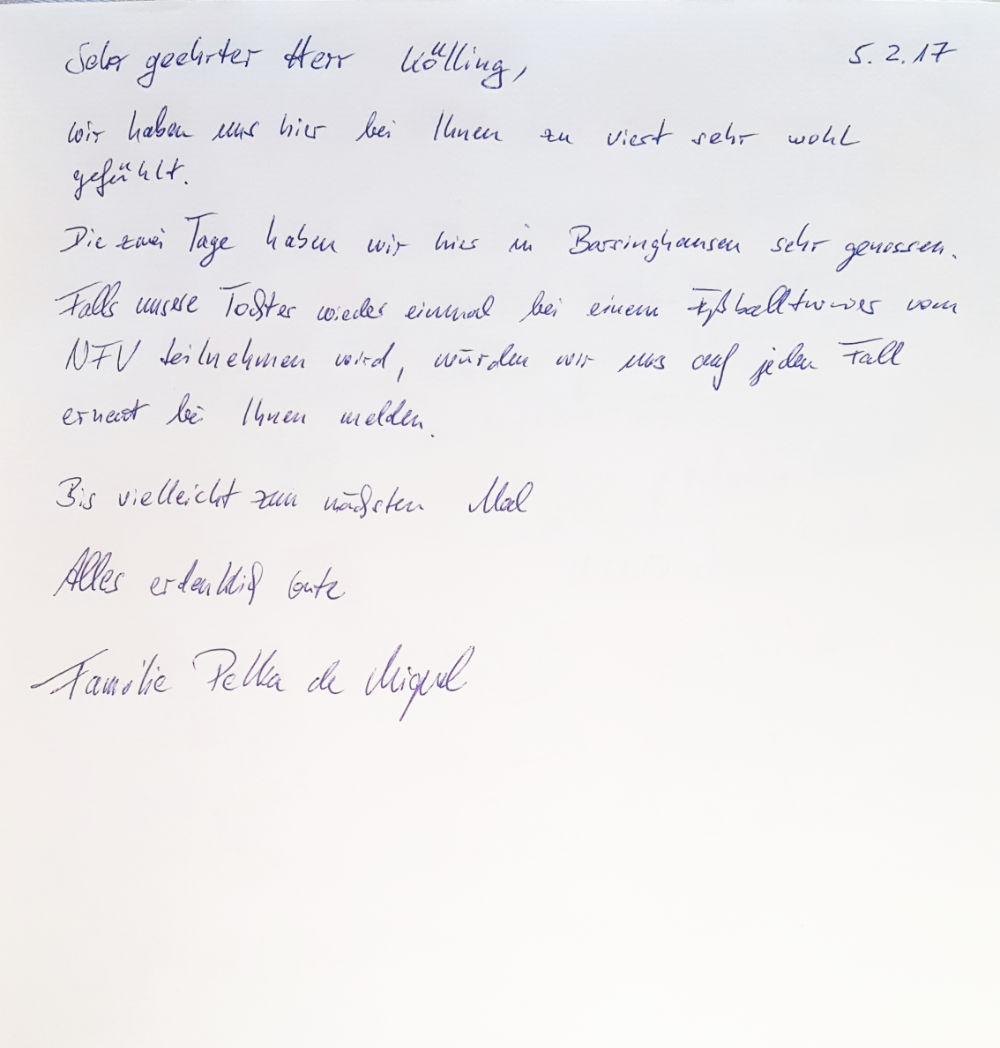 Sehr geehrter Herr Kölling, 5. 2. 17
wir haben uns hier bei Ihnen zu viert sehr wohl
gefühlt.
Die zwei Tage haben wir hier in Barsinghausen sehr genossen.
Falls unsere Tochter wieder einmal bei einem Fußballturnier vom
NFV teilnehmen wird, würden wir uns auf jeden Fall
erneut bei Ihnen melden.
Bis vielleicht zum nächsten Mal
Alles erdenklich Gute
Familie Pelka de Miguel